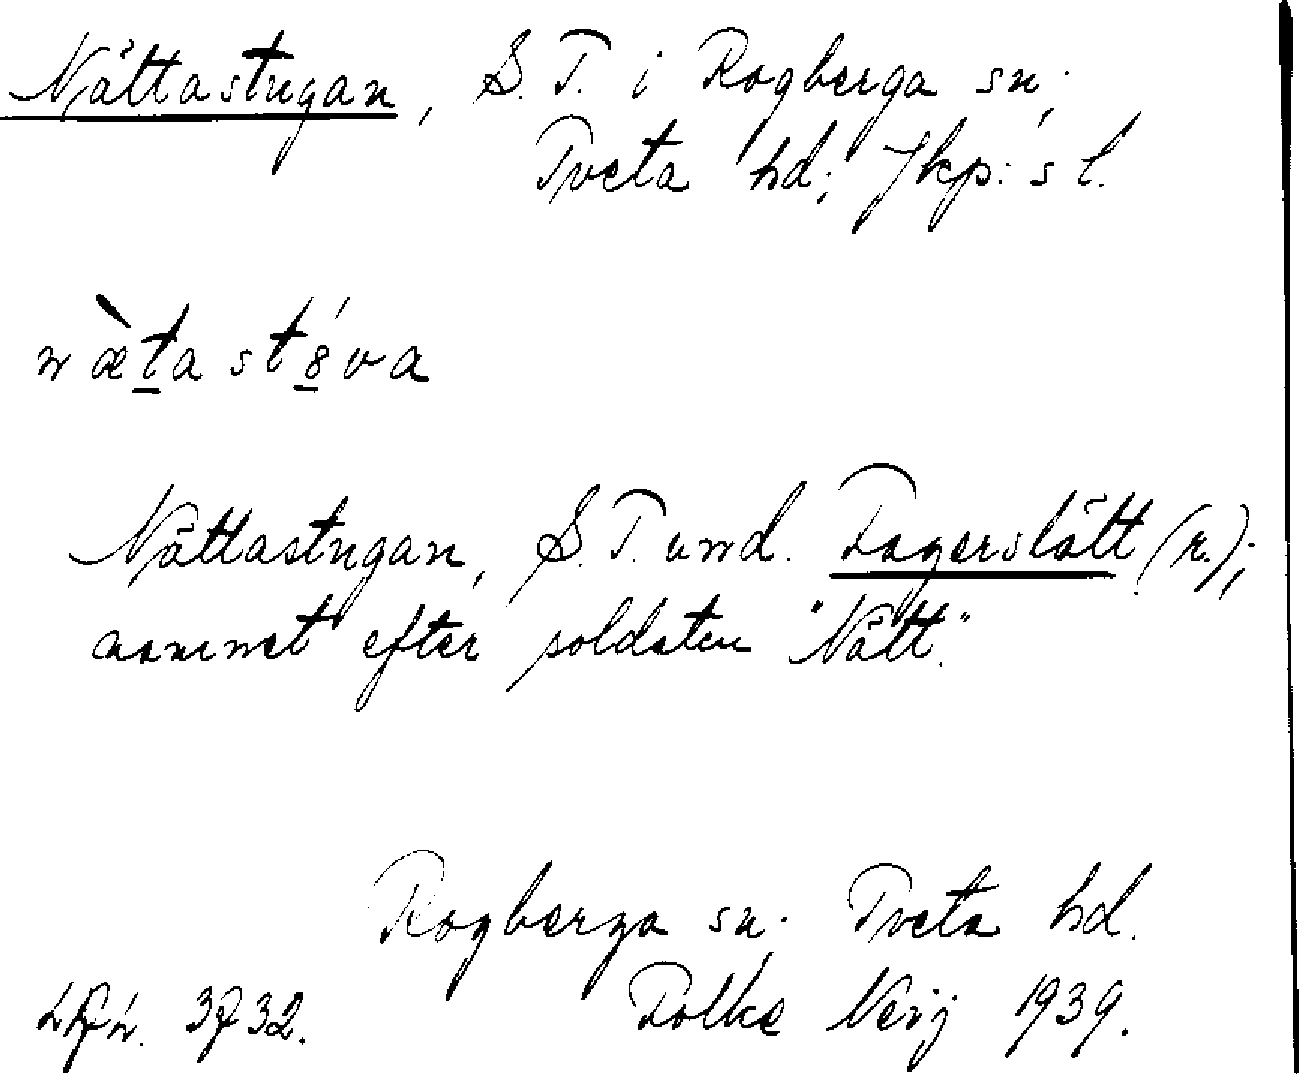 Nättastugan, S. T. i Rogberga sn;
Tveta hd; Jkp:s l.
nὰtastȣ́va
Nättastugan, S. T. und. Fagerslätt (r.);
namnet efter soldaten "Nätt".
Rogberga sn; Tveta hd.
3732. Folke Neij 1939.